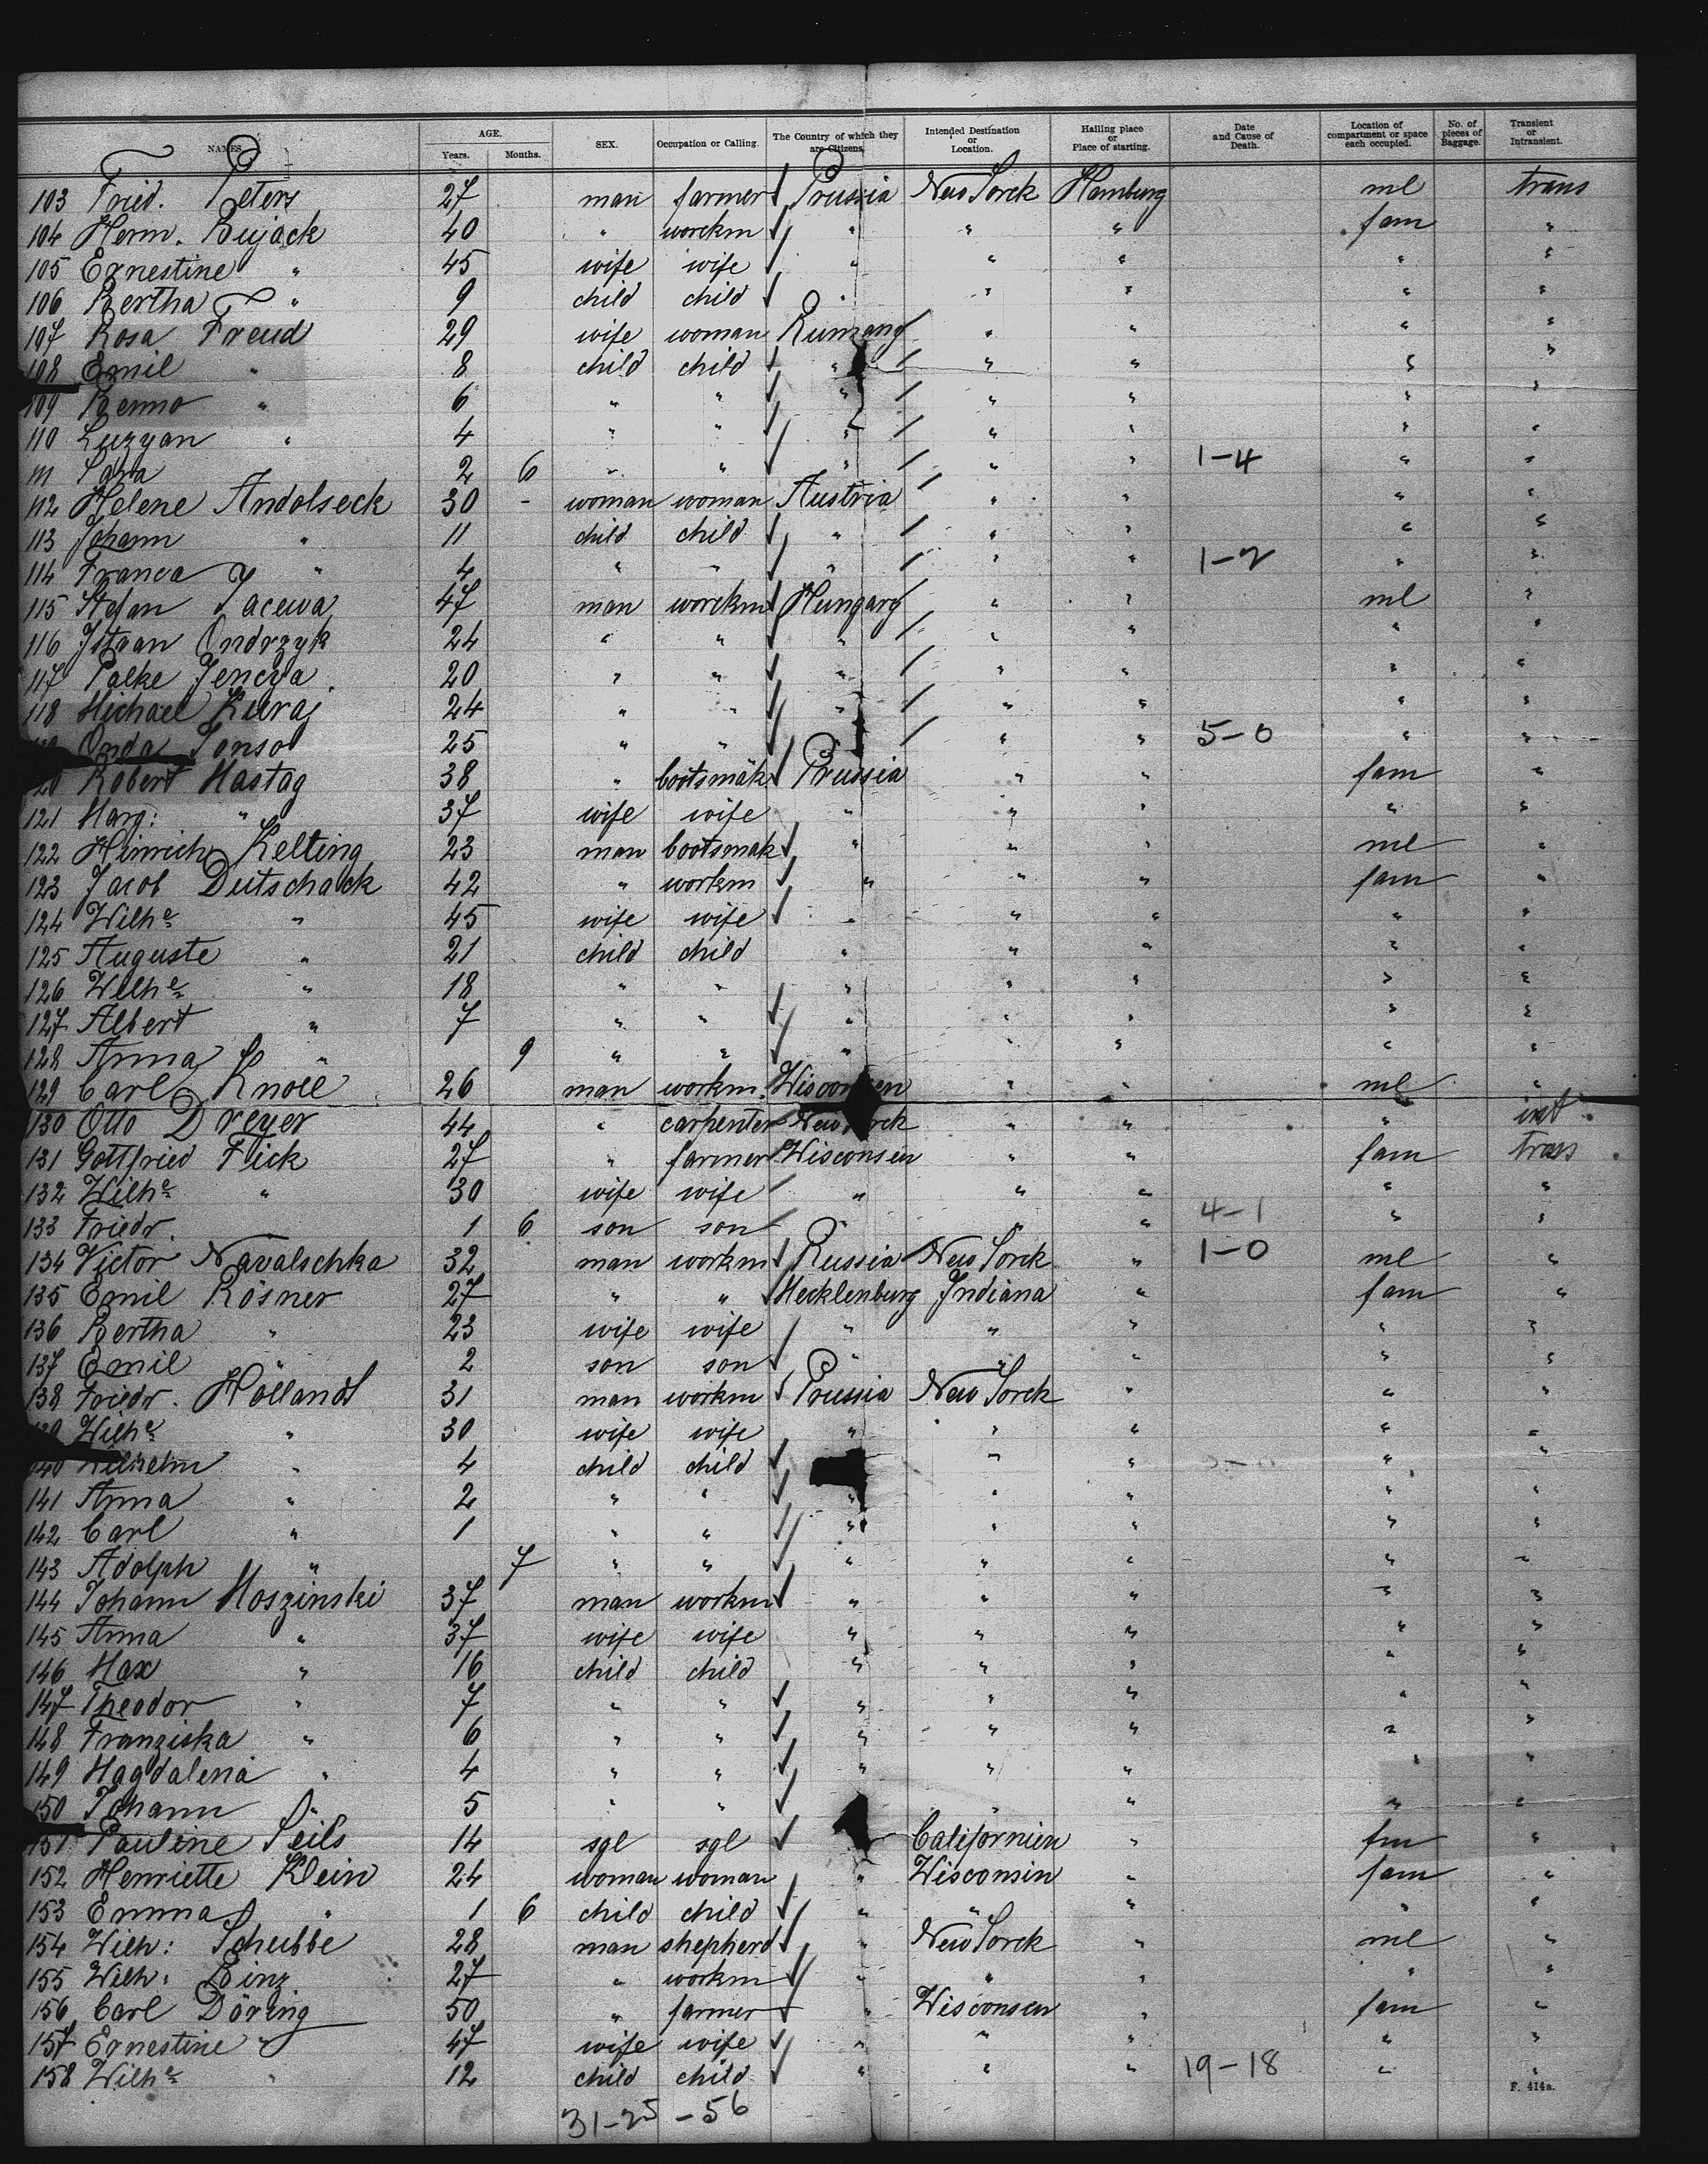 NAMES. AGE. Years. Months. SEX. Occupation or Calling. The Country of which they are Citizens. Intended Destination or Location. Hailing place or Place of starting. Date and Cause of Death. Location of compartment or space each occupied. No. of pieces of Baggage. Transient or Intransient.
103 Fried. Peters 27 man farmer Prussia New Yorck Hamburg ml trans
104 Herm. Bujack 40 " worckm " " " fam "
105 Ernestine " 45 wife wife " " " " "
106 Bertha " 9 child child " " " " "
107 Rosa Freud 29 wife woman Rumany " " " "
108 Emil " 8 child child " " " " "
109 Benno " 6 " " " " " " "
110 Luzyan " 4 " " " " " " "
111 Sara 2 6 " " " " " 1-4 " "
112 Helene Andolseck 30 - woman woman Austria " " " "
113 Johann " 11 child child " " " " "
114 Franca " 4 " " " " " 1-2 " "
115 Stefan Jacewa 47 man worckm Hungary " " ml "
116 Istvan Ondrzyk 24 " " " " " " "
117 Palke Jencza 20 " " " " " " "
118 Michael Kuraj 24 " " " " " " "
Onda Janso 25 " " " " " 5-0 " "
120 Robert Hastag 38 " bootsmak Prussia " " fam "
121 Marg: " 37 wife wife " " " " "
122 Hinrich Kelting 23 man bootsmak " " " ml "
123 Jacob Dutschack 42 " workm " " " fam "
124 Wilhe " 45 wife wife " " " " "
125 Auguste " 21 child child " " " " "
126 Wilhe " 18 " " " " " " "
127 Albert " 7 " " " " " " "
128 Anna " 9 " " " " " " "
129 Carl Knoll 26 man workm. Wisconsen " " ml "
130 Otto Dreyer 44 " carpenter New Yorck " " " int
131 Gottfried Fick 27 " farmer Wisconsen " " fam trans
132 Wilhe " 30 wife wife " " " " "
133 Friedr. 1 6 son son " " " 4-1 " "
134 Victor Navalschka 32 man workm Russia New Yorck " 1-0 ml "
135 Emil Rösner 27 " " Mecklenburg Indiana " fam "
136 Bertha " 23 wife wife " " " " "
137 Emil " 2 son son " " " " "
138 Friedr. Hollandt 31 man workm Prussia New Yorck " " "
139 Wilhe " 30 wife wife " " " " "
140 Wilhelm " 4 child child " " " "
141 Anna " 2 " " " " " " "
142 Carl " 1 " " " " " " "
143 Adolph " 7 " " " " " " "
144 Johann Moszinski 37 man workm " " " " "
145 Anna " 37 wife wife " " " " "
146 Max " 16 child child " " " " "
147 Theodor " 7 " " " " " " "
148 Franziska " 6 " " " " " " "
149 Magdalena " 4 " " " " " " "
150 Johann " 5 " " " " " "
151 Pauline Seils 14 sgl sgl Californien " fm "
152 Henriette Klein 24 woman woman " Wisconsin " fam "
153 Emma " 1 6 child child " " " " "
154 Wilh: Schubbe 28 man shepherd " New Yorck " ml "
155 Wilh: Binz 27 " workm " " " " "
156 Carl Döring 50 " farmer " Wisconsen " fam "
157 Ernestine " 47 wife wife " " " " "
158 Wilhe " 12 child child " " " 19-18 " "
F. 414a.
31-25-56